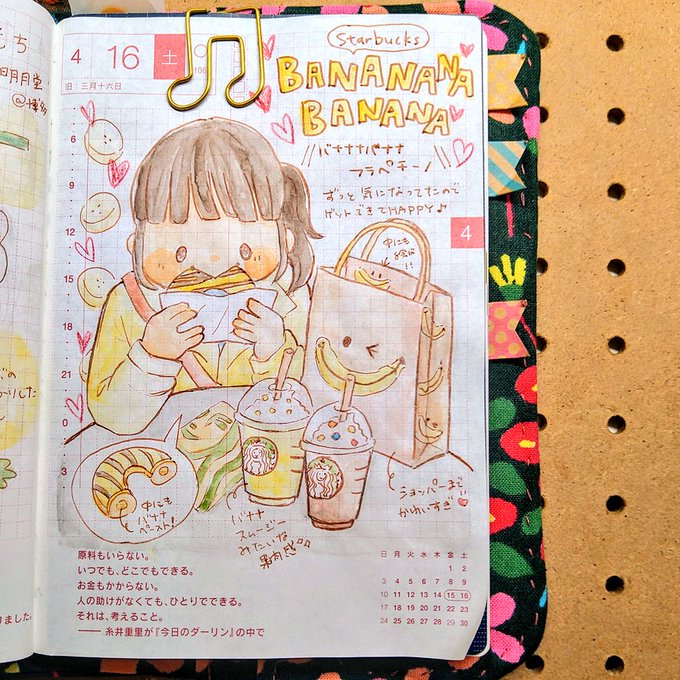 4 16 土
旧:三月十六日
Starbucks
BANANANA
BANANA
バナナナバナナ
フラペチーノ
ずっと気になってたので
ゲットできてHAPPY♪
中にも
6
9
12
15
18
21
0
3
4
中にも
バナナ
ペースト!
バナナ
スムージー
みたいな
果肉感
ショッパーまで
かわいすぎ
原料もいらない。
いつでも、どこでもできる。
お金もかからない。
人の助けがなくても、ひとりでできる。
それは、考えること。
―― 糸井重里が『今日のダーリン』の中で
日 月 火 水 木 金 土
1 2
3 4 5 6 7 8 9
10 11 12 13 14 15 16
17 18 19 20 21 22 23
24 25 26 27 28 29 30